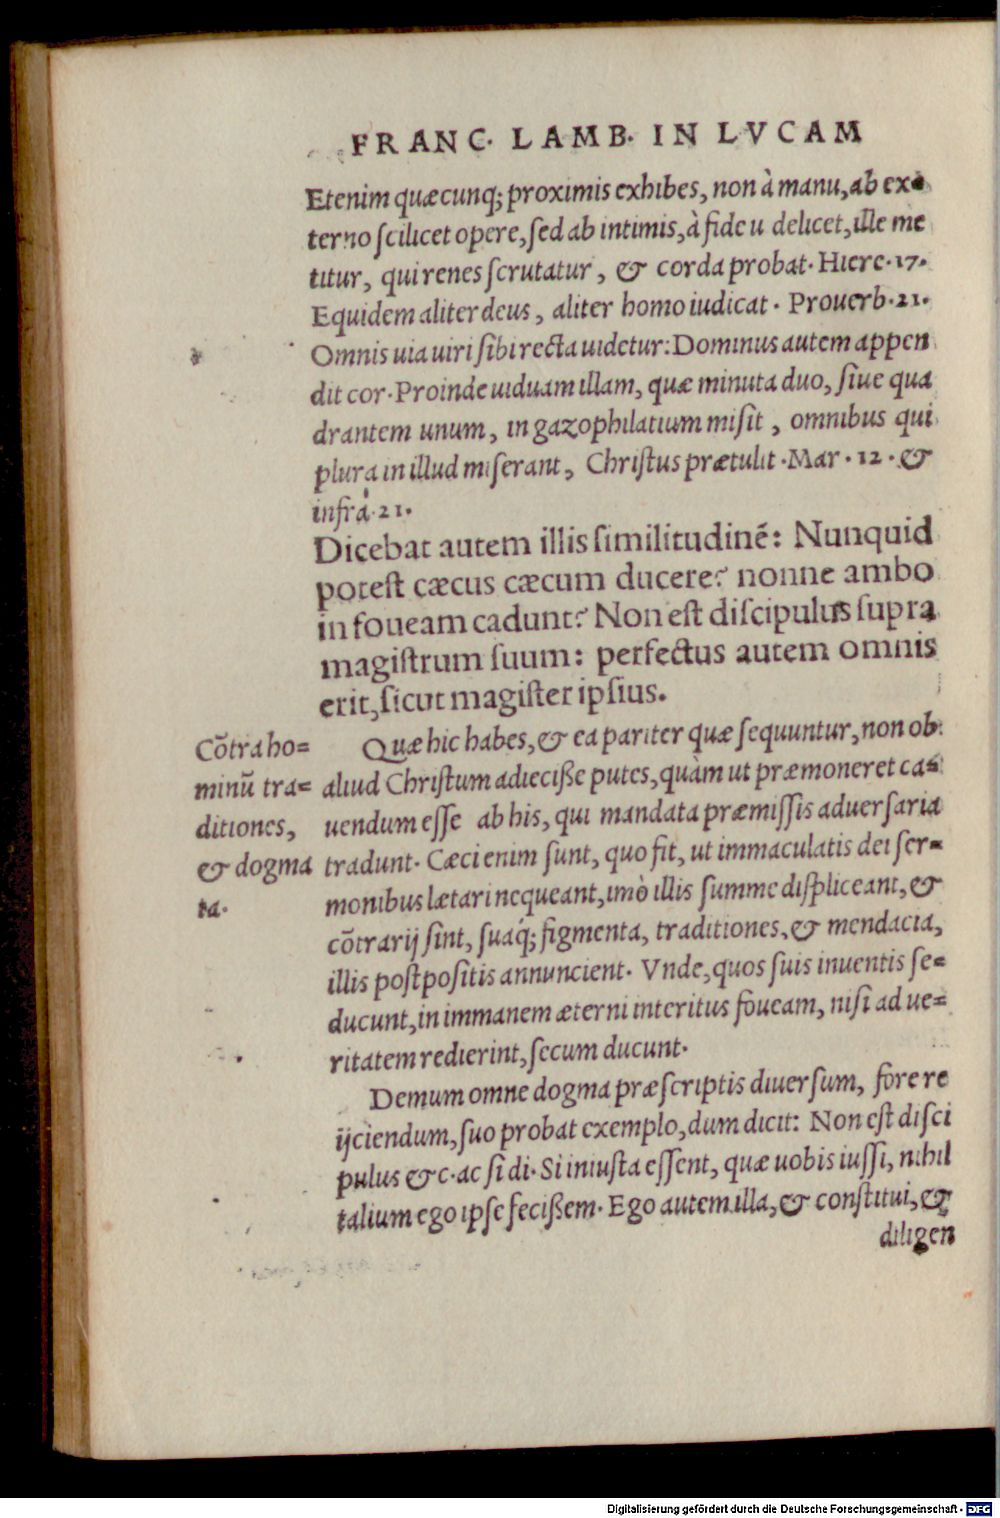 FRANC. LAMB. IN LVCAM
Etenim quæcunq; proximis exhibes, non à manu, ab ex=
terno ſcilicet opere, ſed ab intimis, à fide u delicet, ille me
titur, qui renes ſcrutatur, & corda probat. Hiere. 17.
Equidem aliter deus, aliter homo iudicat. Prouerb. 21.
Omnis uia uiri ſibi recta uidetur: Dominus autem appen
dit cor. Proinde uiduam illam, quæ minuta duo, ſiue qua
drantem unum, in gazophilatium miſit, omnibus qui
plura in illud miſerant, Chriſtus prætulit. Mar. 12. &
infrà. 21.
Dicebat autem illis ſimilitudinē: Nunquid
poteſt cæcus cæcum ducere? nonne ambo
in foueam cadunt? Non eſt diſcipulus ſupra
magiſtrum ſuum: perfectus autem omnis
erit, ſicut magiſter ipſius.
Cōtra ho=
minū tra=
ditiones,
& dogma
ta.
Quæ hic habes, & ea pariter quæ ſequuntur, non ob
aliud Chriſtum adieciße putes, quàm ut præmoneret ca=
uendum eſſe ab his, qui mandata præmiſſis aduerſaria
tradunt. Cæci enim ſunt, quo fit, ut immaculatis dei ſer=
monibus lætari nequeant, imò illis ſumme diſpliceant, &
cōtrarij ſint, ſuaq́; figmenta, traditiones, & mendacia,
illis poſtpoſitis annuncient. Vnde, quos ſuis inuentis ſe=
ducunt, in immanem æterni interitus foueam, niſi ad ue=
ritatem redierint, ſecum ducunt.
Demum omne dogma præſcriptis diuerſum, fore re
ijciendum, ſuo probat exemplo, dum dicit: Non eſt diſci
pulus & c. ac ſi di. Si iniuſta eſſent, quæ uobis iuſſi, nihil
talium ego ipſe feciſſem. Ego autem illa, & conſtitui, &
diligen
Digitalisierung gefördert durch die Deutsche Forschungsgemeinschaft - DFG